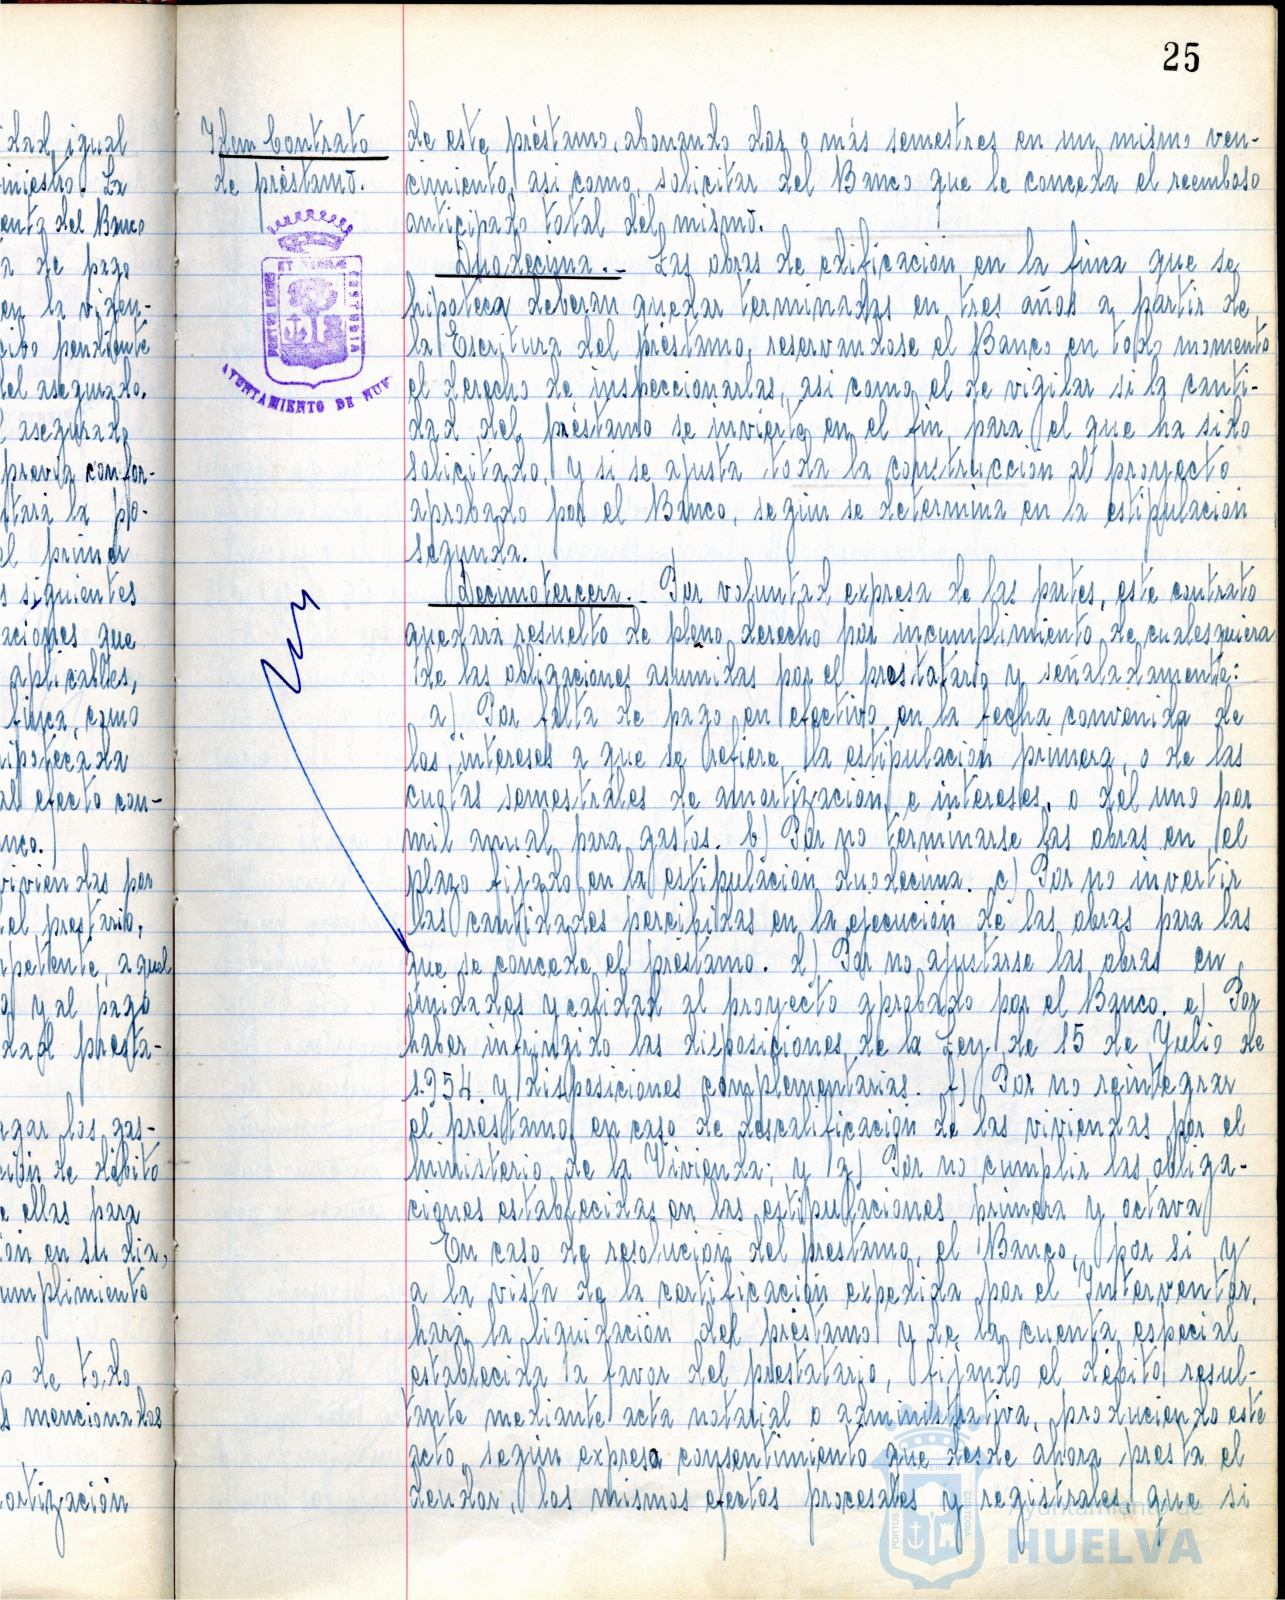 25
idad igual
iniestro. La
enta del Banco
a de pago
en la vigen-
cibo pendiente
del asegurado.
l asegurado
previa confor-
tará la pó-
el primer
s siguientes
aciones que
aplicables,
finca, como
hipotecada
al efecto con-
nco.
viviendas por
el prestario,
petente, a quel
a y al pago
dad presta-
agar los gas-
ción de débito
e ellas para
ón en su día,
umplimiento
o de todo
s mencionadas
ortización
Idem Contrato
de préstamo.
PORTUS MARIS ET TERRAE CUSTODIA
AYUNTAMIENTO DE HUE
de este préstamo, abonando dos o más semestres en un mismo ven-
cimiento, asi como, solicitar del Banco que le conceda el reemboso
anticipado total del mismo.
Duodecima.- Las obras de edificación en la finca que se
hipoteca deberan quedar terminadas en tres años a partir de
la Escritura del préstamo, reservandose el Banco en todo momento
el derecho de inspeccionarlas, asi como el de vigilar si la canti-
dad del préstamo se invierte en el fin, para el que ha sido
solicitado, y si se ajusta toda la construcción al proyecto
aprobado por el Banco, según se determina en la estipulación
segunda.
Decimotercera.- Por voluntad expresa de las partes, este contrato
quedará resuelto de pleno derecho por incumplimiento de cualesquiera
de las obligaciones asumidas por el prestatario y señaladamente:
a) Por falta de pago en efectivo en la fecha convenida de
los intereses a que se refiere la estipulación primera, o de las
cuotas semestrales de amortización e intereses, o del uno por
mil anual para gastos. b) Por no terminarse las obras en el
plazo fijado en la estipulación duodecima. c) Por no invertir
las cantidades percibidas en la ejecución de las obras para las
que se concede el préstamo. d) Por no ajustarse las obras en
unidades y calidad al proyecto aprobado por el Banco. e) Por
haber infringido las disposiciones de la Ley de 15 de Julio de
1.954 y disposiciones complementarias. f) Por no reintegrar
el préstamo en caso de descalificación de las viviendas por el
Ministerio de la Vivienda; y g) Por no cumplir las obliga-
ciones establecidas en las estipulaciones primera y octava
En caso de resolución del prestamo, el Banco, por si y
a la vista de la certificación expedida por el Interventor,
hará la liquidación del préstamo y de la cuenta especial
establecida a favor del prestatario, fijando el débito resul-
tante mediante acta notarial o administrativa, produciendo este
acto, según expresa consentimiento que desde ahora presta el
deudor, los mismos efectos procesales y registrales que si
Ayuntamiento de
HUELVA